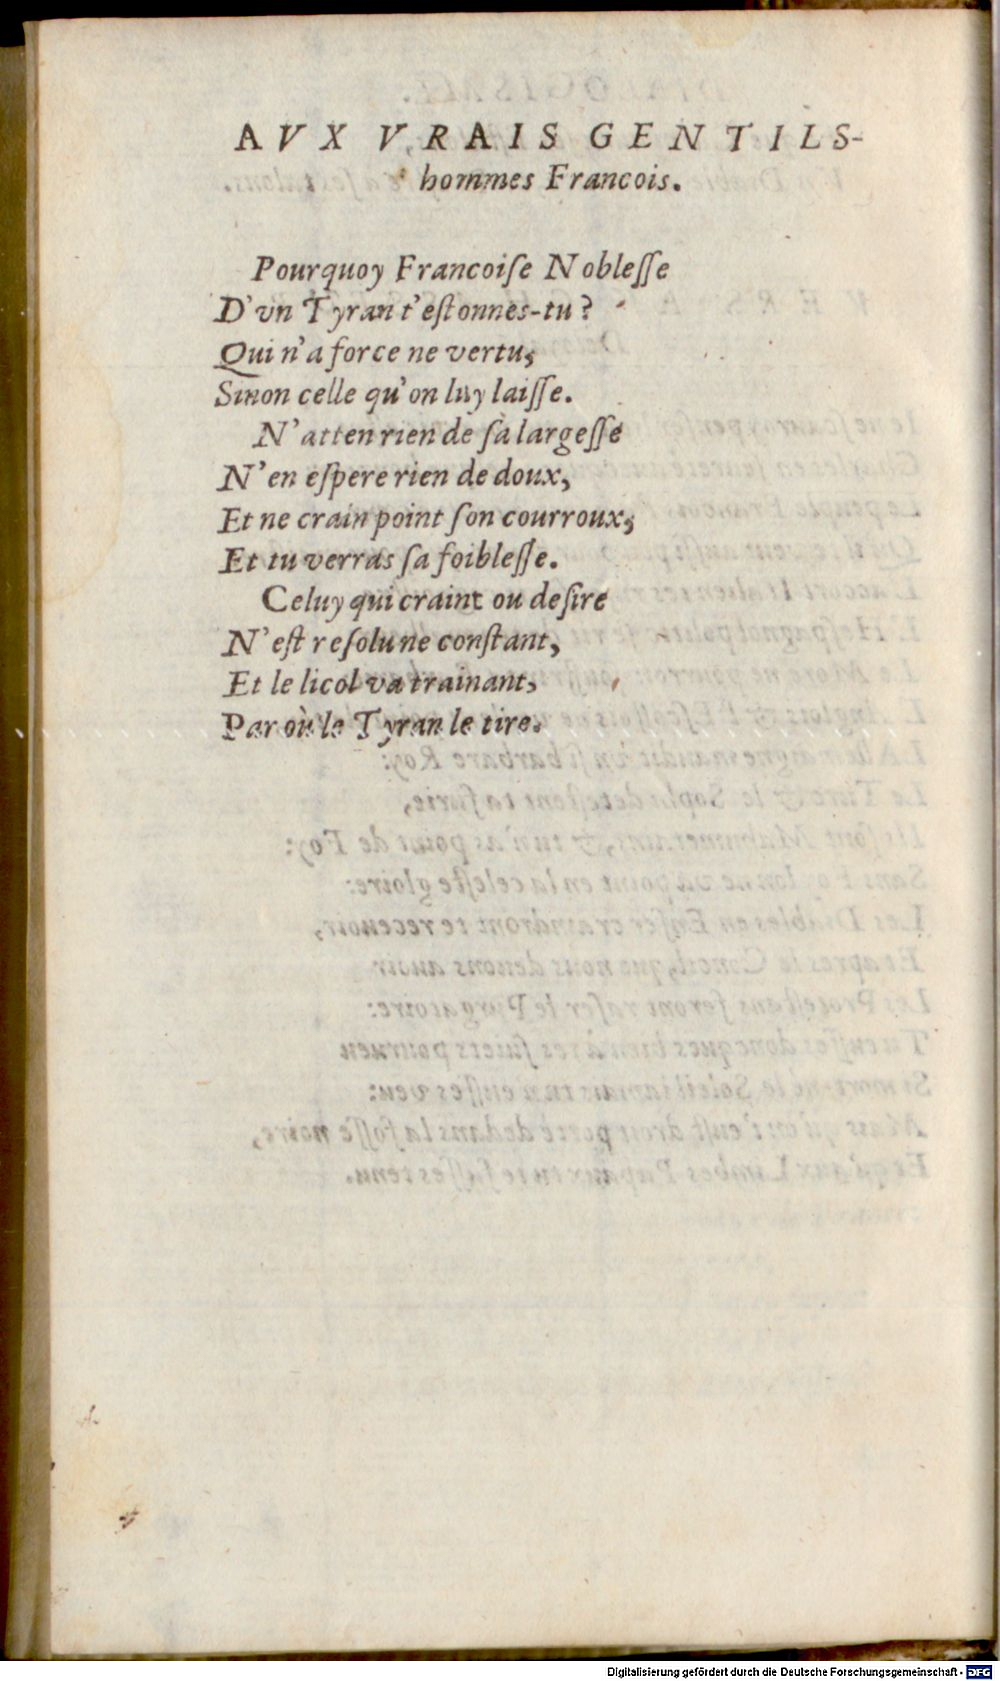 AVX VRAIS GENTILS-
hommes Francois.
Pourquoy Francoiſe Nobleſſe
D'vn Tyran t'eſtonnes-tu?
Qui n'a force ne vertu,
Sinon celle qu'on luy laiſſe.
N'atten rien de ſa largeſſe
N'en eſpere rien de doux,
Et ne crain point ſon courroux,
Et tu verras ſa foibleſſe.
Celuy qui craint ou deſire
N'eſt reſolu ne conſtant,
Et le licol va trainant,
Par où le Tyran le tire.
Digitalisierung gefördert durch die Deutsche Forschungsgemeinschaft - DFG